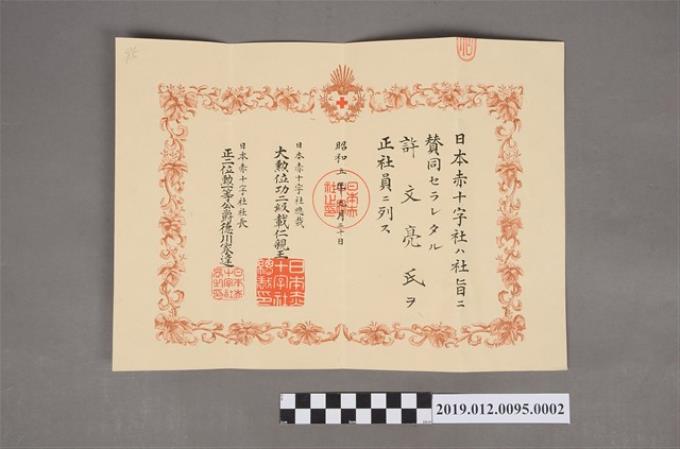 日本赤十字社ハ社旨ニ
賛同セラレタル
許文亮氏ヲ
正社員ニ列ス
昭和五年九月三十日
日本赤十字社総裁
大勲位功二級載仁親王
日本赤十字社社長
正二位勲一等公爵徳川家達
2019.012.0095.0002